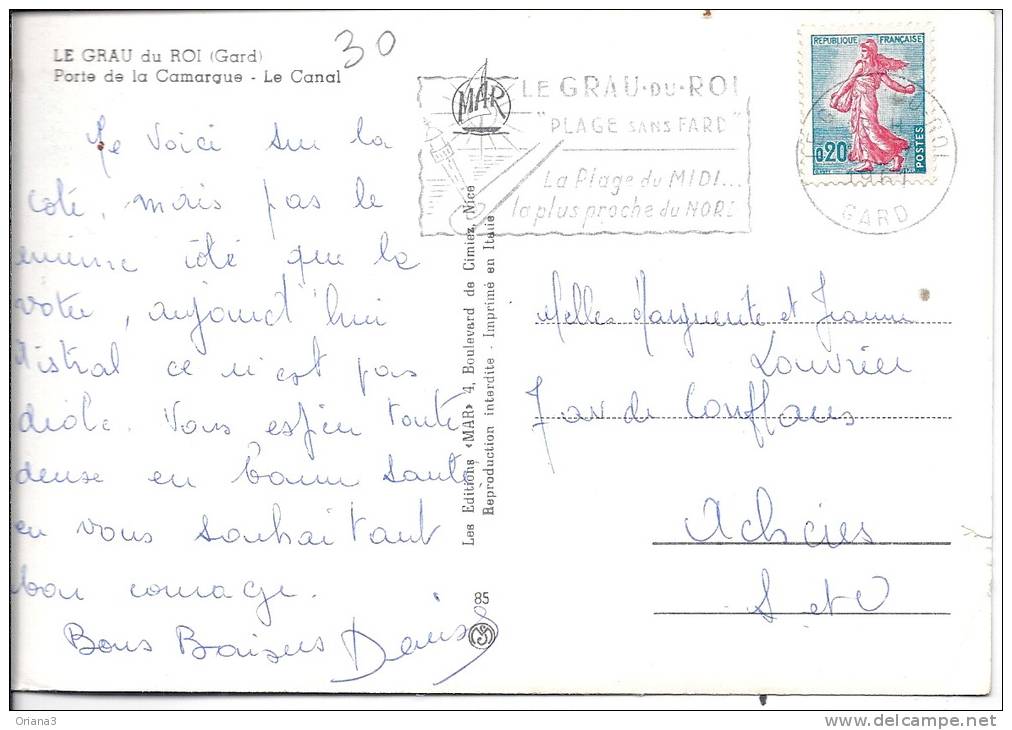 LE GRAU du ROI (Gard)
Porte de la Camargue - Le Canal
30
Me Voici sur la
coté, mais pas le
même côté que la
votre, aujourd'hui
Mistral ce n'est pas
drôle. Vous espère toute
deuse en bonne santé,
en vous souhaitant
bon courage.
Bons Baisers Denise
Les Editions «MAR» 4, Boulevard de Cimiez, Nice
Reproduction interdite - Imprimé en Italie
85
MAR
LE GRAU·DU·ROI
"PLAGE SANS FARD"
La Plage du MIDI...
la plus proche du NORD
REPUBLIQUE FRANÇAISE
0,20
POSTES
GARD
Melles Marguerite et Jeanne
Louvrier
7 av de Conflans
Achères
S et O
Oriana3
www.delcampe.net